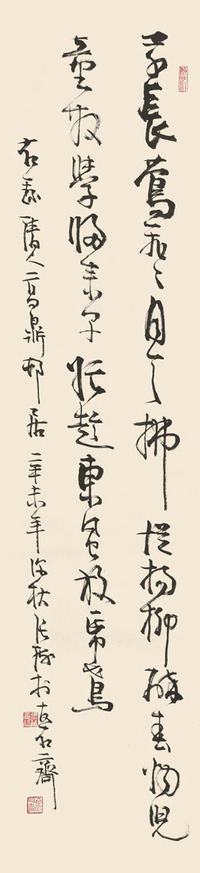 草長鶯飛二月天拂堤楊柳醉春烟兒
童散學歸來早忙趁東風放紙鳶
右錄清人高鼎邨居 乙未年深秋 於 石齋